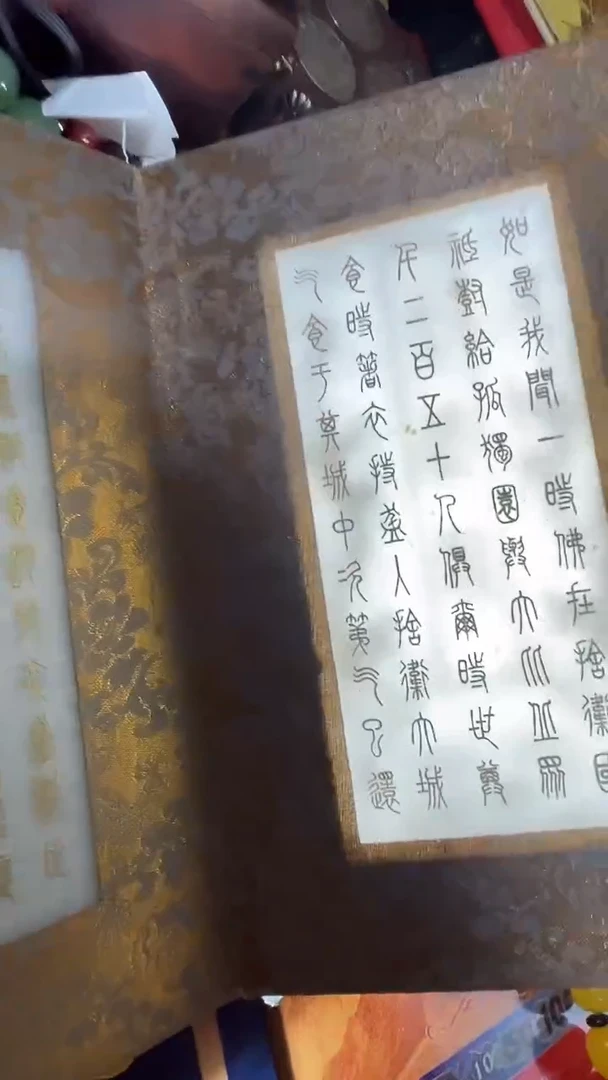 如是我聞一時佛在捨衛國
祇尌給孤獨園與大比丘眾
千二百五十人俱爾時世尊
食時著衣持盋入捨衛大城
乞食于其城中次第乞已還
10
10